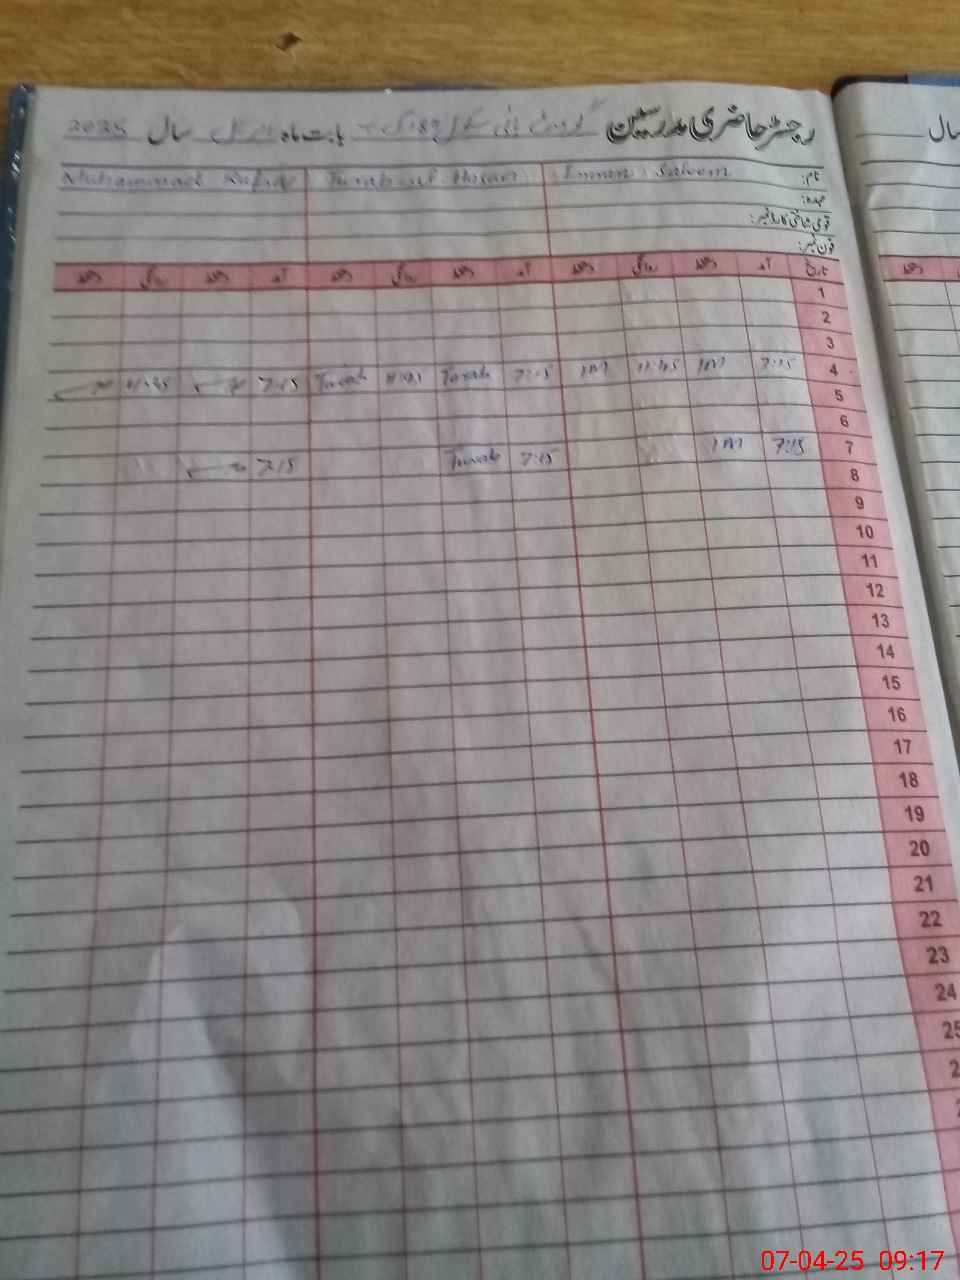 رجسٹر حاضری مدرسین گورنمنٹ ہائی سکول 189 بابت ماہ اپریل سال 2025
سال
نام: Imran Saleem Turab ul Hasan Muhammad
عہدہ:
قومی شناختی کارڈ نمبر:
فون نمبر:
تاریخ آمد دستخط روانگی دستخط آمد دستخط روانگی دستخط آمد دستخط روانگی دستخط
1
2
3
4 7:15 IM 11:45 IM 7:15 Turab 11:45 Turab 7:15 11:45
5
6
7 7:15 IM 7:15 Turab 7:15
8
9
10
11
12
13
14
15
16
17
18
19
20
21
22
23
24
25
07-04-25 09:17